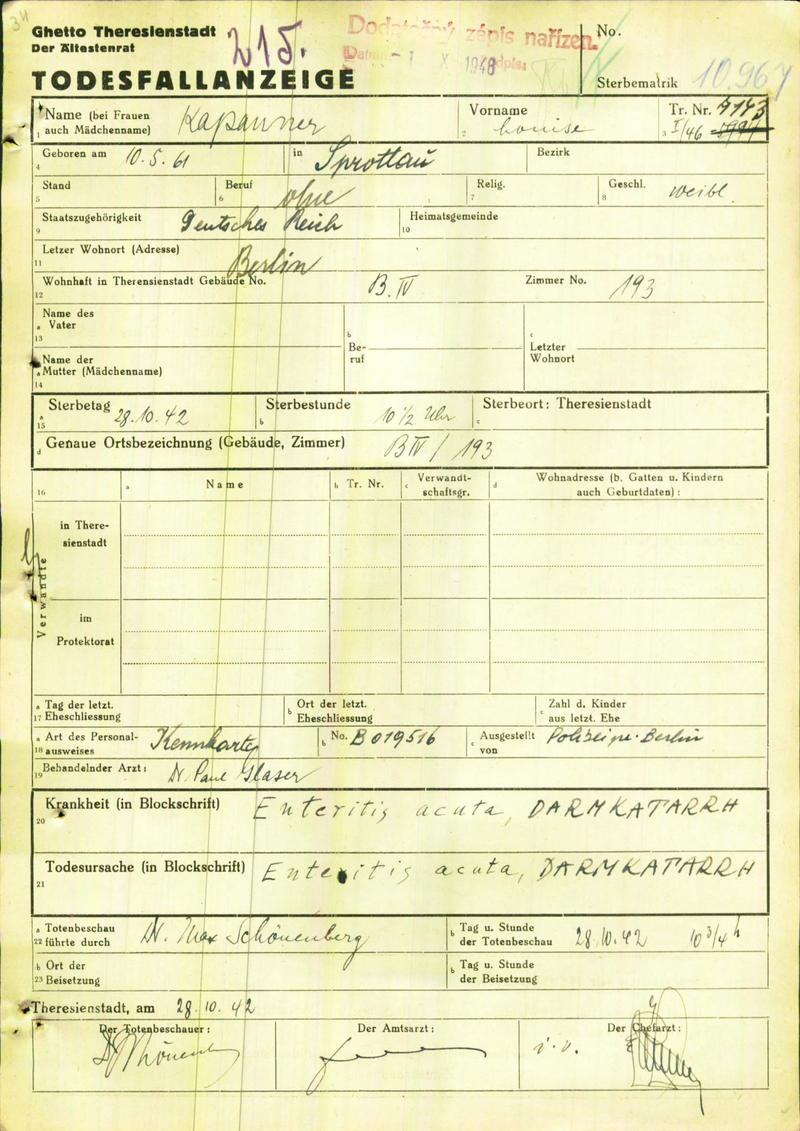 34
Ghetto Theresienstadt
Der Ältestenrat
TODESFALLANZEIGE
215.
Dodatečný zápis nařízen.
Datum -1 X 1948
No.
Sterbematrik 10.967
Name (bei Frauen auch Mädchenname) Kapauner
1
Vorname Louise
2
Tr. Nr. 4143
3 I/46
Geboren am 10.5.61
4
in Sprottau
Bezirk
Stand
5
Beruf ohne
6
Relig.
7
Geschl. weibl.
8
Staatszugehörigkeit Deutsches Reich
9
Heimatsgemeinde
10
Letzer Wohnort (Adresse) Berlin
11
Wohnhaft in Therensienstadt Gebäude No. B.IV
12
Zimmer No. 193
Name des
a Vater
13
b Be-
ruf
c Letzter
Wohnort
Name der
a Mutter (Mädchenname)
14
Sterbetag 28.10.42
a
15
Sterbestunde 10 1/2 Uhr
b
Sterbeort: Theresienstadt
c
d Genaue Ortsbezeichnung (Gebäude, Zimmer) B IV / 193
16
a Name
b Tr. Nr.
c Verwandt-
schaftsgr.
d Wohnadresse (b. Gatten u. Kindern
auch Geburtdaten):
Verwandte
in There-
sienstadt
im
Protektorat
a Tag der letzt.
17 Eheschliessung
b Ort der letzt.
Eheschliessung
c Zahl d. Kinder
aus letzt. Ehe
a Art des Personal-
18 ausweises Kennkarte
b No. B 019516
c Ausgestellt
von Polizeipr. Berlin
Behandelnder Arzt: Dr. Paul Glaser
19
Krankheit (in Blockschrift) Enteritis acuta, DARMKATARRH
20
Todesursache (in Blockschrift) Enteritis acuta, DARMKATARRH
21
a Totenbeschau
22 führte durch Dr. Max Schönenberg
b Tag u. Stunde
der Totenbeschau 28.10.42 10 3/4 h
b Ort der
23 Beisetzung
b Tag u. Stunde
der Beisetzung
Theresienstadt, am 28.10.42
Der Totenbeschauer:
Der Amtsarzt:
Der Chefarzt:
i.v.